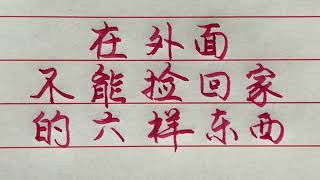 在外面
不能捡回家
的六样东西